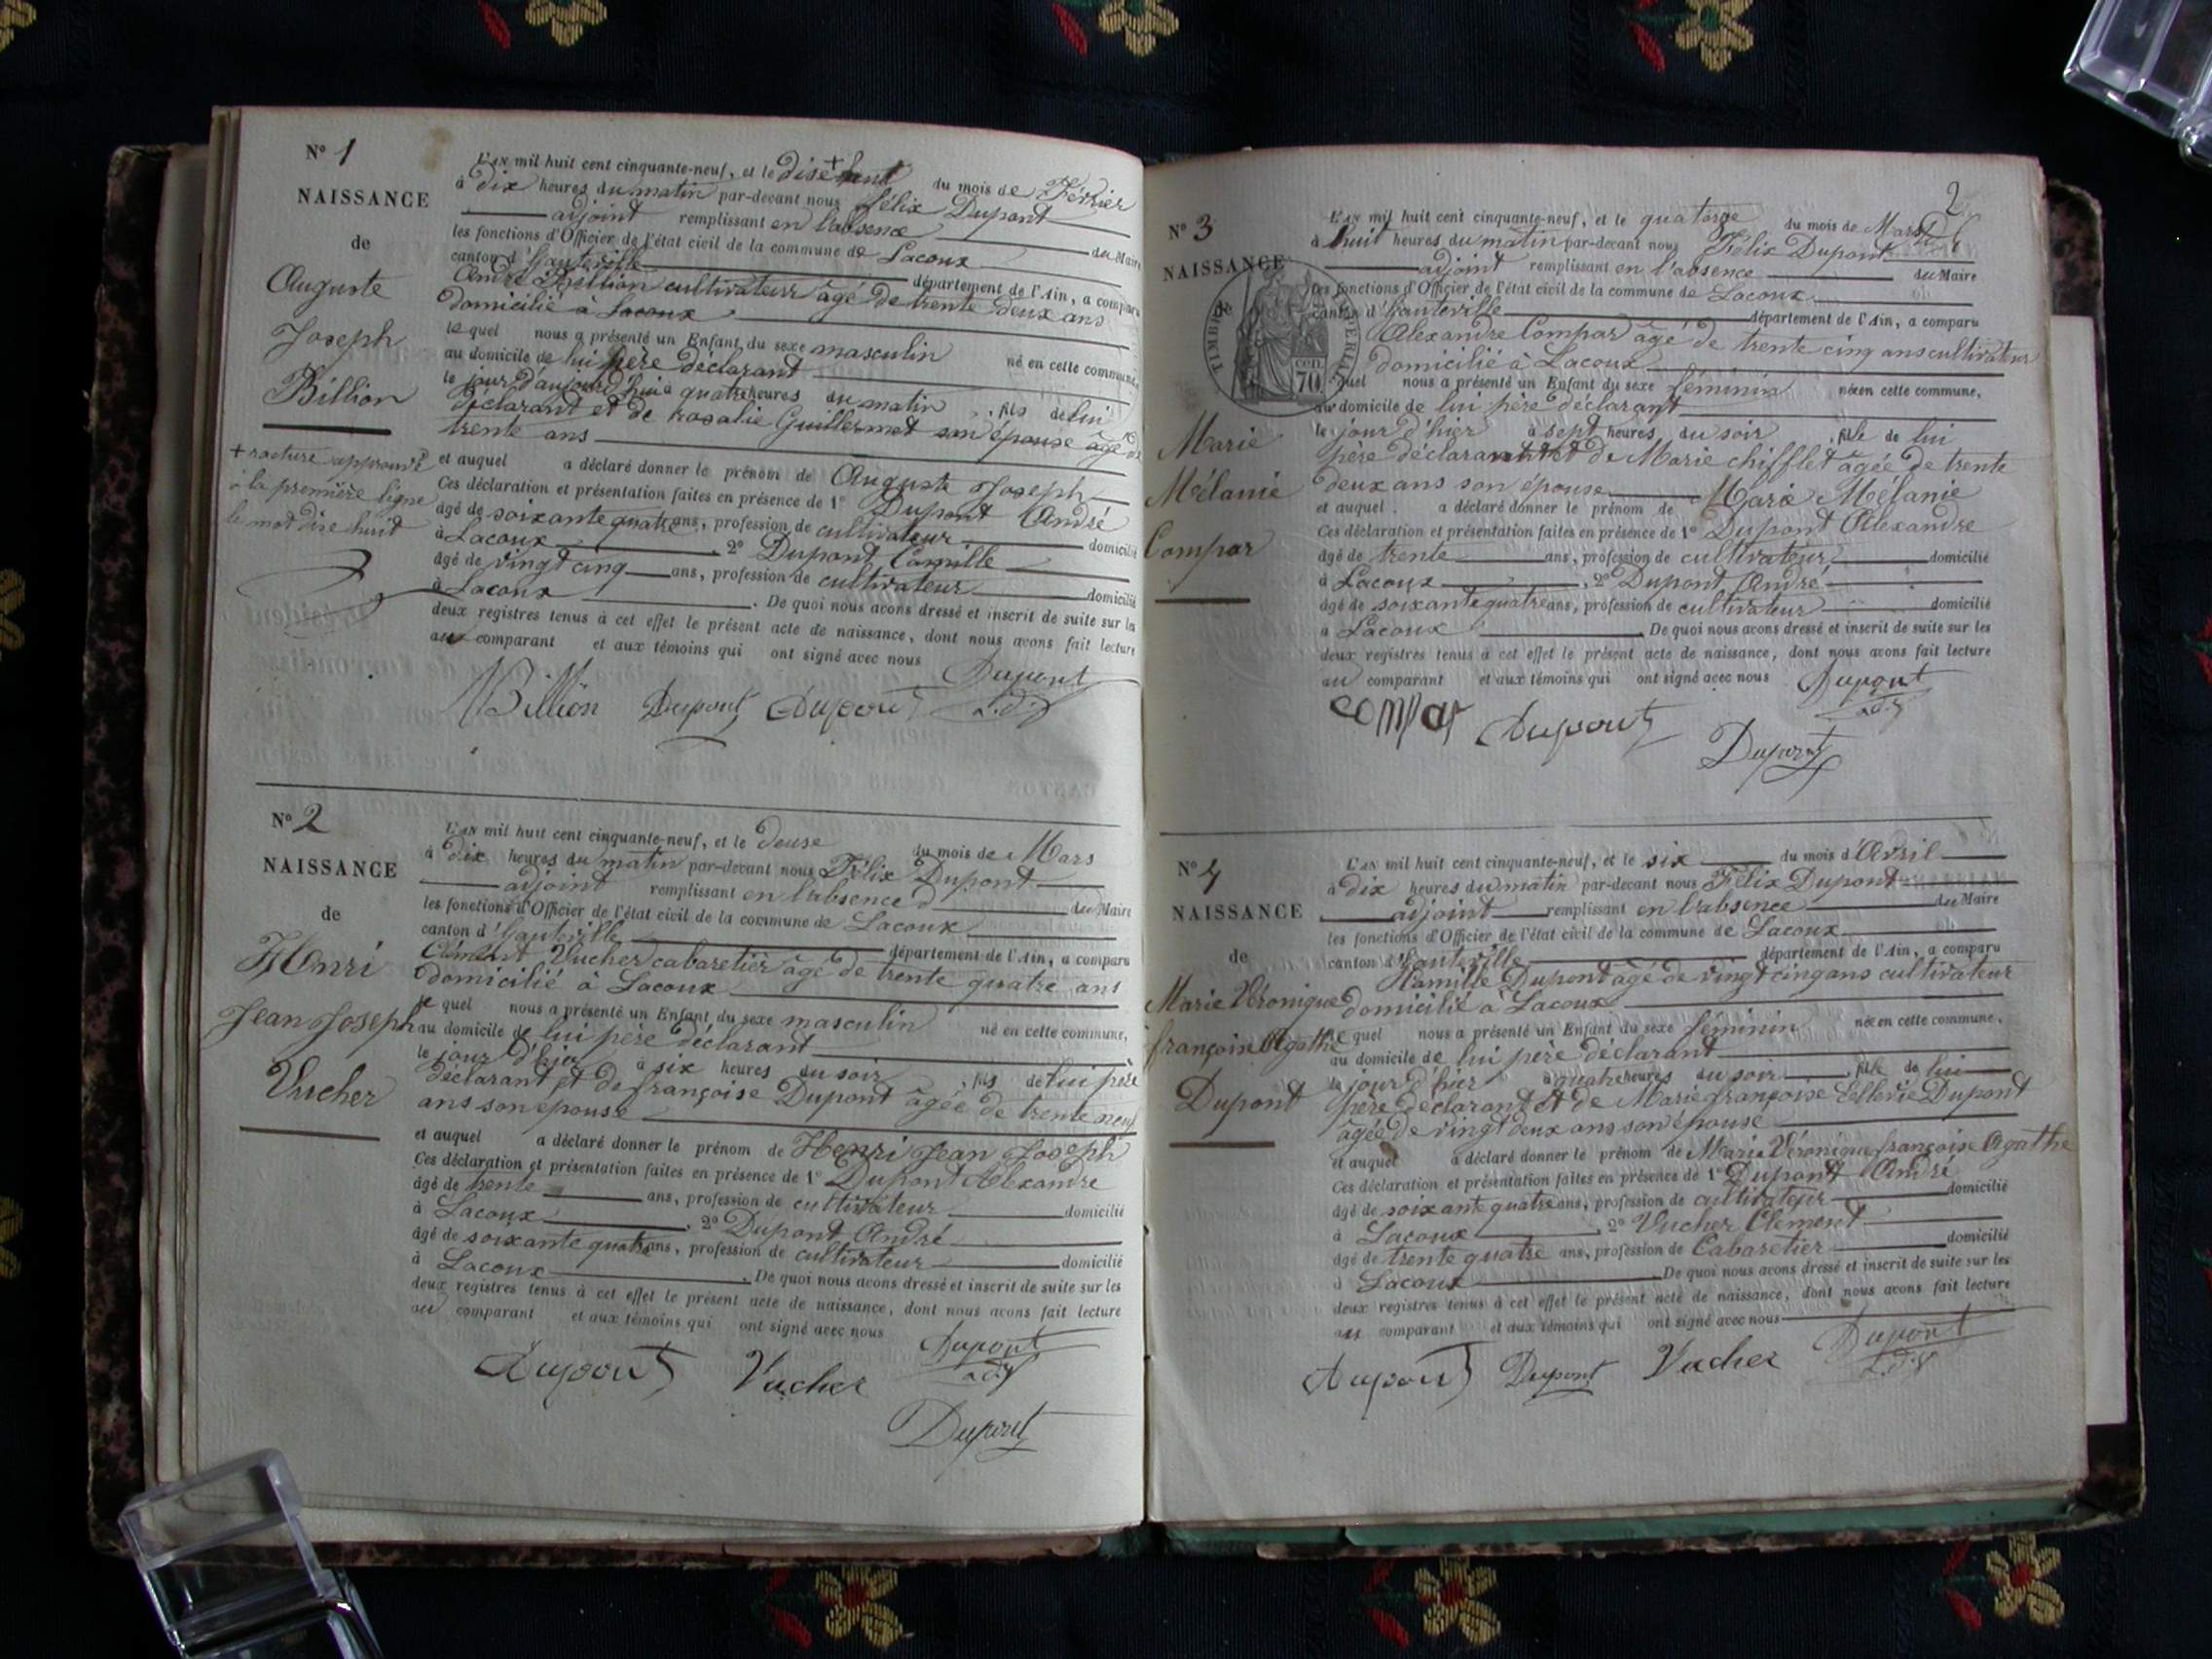 N° 1
NAISSANCE
de
Auguste
Joseph
Billion
+ rature approuvé
à la première ligne
le mot dise huit
L'AN mil huit cent cinquante-neuf, et le dise + huit du mois de Février
à dix heures du matin par-devant nous félix Dupont
adjoint remplissant en l'absence du Maire
les fonctions d'Officier de l'état civil de la commune de Lacoux
canton d'hauteville département de l'Ain, a comparu
André Billion cultivateur âgé de trente deux ans
domicilié à Lacoux
le quel nous a présenté un Enfant du sexe masculin né en cette commune,
au domicile de lui père déclarant
le jour d'aujourd'hui à quatre heures du matin, fils de lui
déclarant et de rosalie Guillermet son épouse âgé de
trente ans
et auquel a déclaré donner le prénom de Auguste Joseph
Ces déclaration et présentation faites en présence de 1° Dupont André
âgé de soixante quatre ans, profession de cultivateur domicilié
à Lacoux, 2° Dupont Camille
âgé de vingt cinq ans, profession de cultivateur domicilié
à Lacoux. De quoi nous avons dressé et inscrit de suite sur les
deux registres tenus à cet effet le présent acte de naissance, dont nous avons fait lecture
au comparant et aux témoins qui ont signé avec nous
Billion Dupont Dupont Dupont
adj
N° 2
NAISSANCE
de
Henri
Jean Joseph
Vucher
L'AN mil huit cent cinquante-neuf, et le deuse du mois de Mars
à dix heures du matin par-devant nous Félix Dupont
adjoint remplissant en l'absence d du Maire
les fonctions d'Officier de l'état civil de la commune de Lacoux
canton d'hauteville département de l'Ain, a comparu
Clément Vucher cabaretier âgé de trente quatre ans
domicilié à Lacoux
le quel nous a présenté un Enfant du sexe masculin né en cette commune,
au domicile de lui père déclarant
le jour d'hier à six heures du soir, fils de lui père
déclarant et de françoise Dupont âgée de trente neuf
ans son épouse
et auquel a déclaré donner le prénom de Henri Jean Joseph
Ces déclaration et présentation faites en présence de 1° Dupont Alexandre
âgé de trente ans, profession de cultivateur domicilié
à Lacoux, 2° Dupont André
âgé de soixante quatre ans, profession de cultivateur domicilié
à Lacoux. De quoi nous avons dressé et inscrit de suite sur les
deux registres tenus à cet effet le présent acte de naissance, dont nous avons fait lecture
au comparant et aux témoins qui ont signé avec nous
Dupont Vucher Dupont
adj
Dupont
2
N° 3
NAISSANCE
de
TIMBRE
70
Marie
Mélanie
Compar
L'AN mil huit cent cinquante-neuf, et le quatorze du mois de Mars
à huit heures du matin par-devant nous Félix Dupont
adjoint remplissant en l'absence du Maire
les fonctions d'Officier de l'état civil de la commune de Lacoux
canton d'hauteville département de l'Ain, a comparu
Alexandre Compar âgé de trente cinq ans cultivateur
domicilié à Lacoux
le quel nous a présenté un Enfant du sexe féminin née en cette commune,
au domicile de lui père déclarant
le jour d'hier à sept heures du soir, fille de lui
père déclarant et de Marie chifflet âgée de trente
deux ans son épouse
et auquel a déclaré donner le prénom de Marie Mélanie
Ces déclaration et présentation faites en présence de 1° Dupont Alexandre
âgé de trente ans, profession de cultivateur domicilié
à Lacoux, 2° Dupont André
âgé de soixante quatre ans, profession de cultivateur domicilié
à Lacoux. De quoi nous avons dressé et inscrit de suite sur les
deux registres tenus à cet effet le présent acte de naissance, dont nous avons fait lecture
au comparant et aux témoins qui ont signé avec nous Dupont
adj
compar Dupont
Dupont
N° 4
NAISSANCE
de
Marie Véronique
françoise Agathe
Dupont
L'AN mil huit cent cinquante-neuf, et le six du mois d'Avril
à dix heures du matin par-devant nous Félix Dupont
adjoint remplissant en l'absence du Maire
les fonctions d'Officier de l'état civil de la commune de Lacoux
canton d'hauteville département de l'Ain, a comparu
Kamille Dupont âgé de vingt cinq ans cultivateur
domicilié à Lacoux
le quel nous a présenté un Enfant du sexe féminin née en cette commune,
au domicile de lui père déclarant
le jour d'hier à quatre heures du soir, fille de lui
père déclarant et de Marie françoise Dupont
âgée de vingt deux ans son épouse
et auquel a déclaré donner le prénom de Marie Véronique françoise Agathe
Ces déclaration et présentation faites en présence de 1° Dupont André
âgé de soixante quatre ans, profession de cultivateur domicilié
à Lacoux, 2° Vucher Clément
âgé de trente quatre ans, profession de Cabaretier domicilié
à Lacoux. De quoi nous avons dressé et inscrit de suite sur les
deux registres tenus à cet effet le présent acte de naissance, dont nous avons fait lecture
au comparant et aux témoins qui ont signé avec nous
Dupont Dupont Vucher Dupont
adj